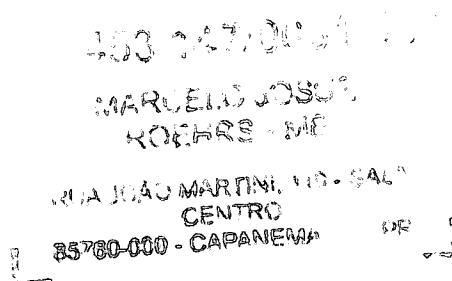 MARCELO JOSUÉ
ROEHRS - ME
RUA JOÃO MARTINI, - SALA
CENTRO
85760-000 - CAPANEMA PR